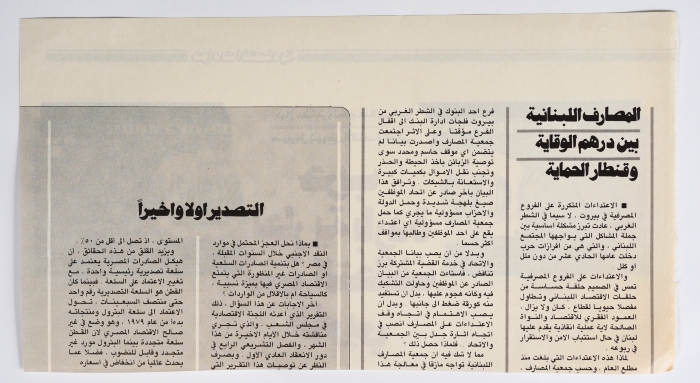 المصارف اللبنانية
بين درهم الوقاية
وقنطار الحماية
■ الاعتداءات المتكررة على الفروع
المصرفية في بيروت ، لا سيما في الشطر
الغربي ، عادت تبرز مشكلة اساسية بين
جملة المشاكل التي يواجهها المجتمع
اللبناني ، والتي هي من افرازات حرب
دخلت عامها الحادي عشر من دون ملل
او كلل
والاعتداءات على الفروع المصرفية
تمس في الصميم حلقة حساسة من
حلقات الاقتصاد اللبناني وتطاول
مفصلا حيويا لقطاع ، كان ولا يزال ،
العمود الفقري للاقتصاد والنواة
الصالحة لاية عملية انقاذية يقدم عليها
لبنان في حال استتباب الامن والاستقرار
في ربوعه .
لماذا هذه الاعتداءات التي بلغت منذ
مطلع العام ، وحسب جمعية المصارف ،
فرع احد البنوك في الشطر الغربي من
بيروت فلجأت ادارة البنك الى اقفال
الفرع مؤقتا . وعلى الاثر اجتمعت
جمعية المصارف واصدرت بيانا لم
يتضمن اي موقف حاسم ومحدد سوى
توصية الزبائن باخذ الحيطة والحذر
وتجنب نقل الاموال بكميات كبيرة
والاستعانة بالشيكات . وترافق هذا
البيان بآخر صادر عن اتحاد الموظفين
صيغ بلهجة شديدة وحمل الدولة
والاحزاب مسؤولية ما يجري كما حمل
جمعية المصارف مسؤولية اي اعتداء
يقع على احد الموظفين وطالبها بمواقف
اكثر حسما .
وبدلا من ان يصب بيانا الجمعية
والاتحاد في خدمة القضية المشتركة برز
تناقض ، فاستاءت الجمعية من البيان
الصادر عن الموظفين وحاولت التشكيك
فيه وكأنه هجوم عليها ، بدل ان تستفيد
منه كورقة ضغط الى جانبها . وبدل ان
يصب الاهتمام في اتجاه وقف
الاعتداءات على المصارف انصب في
اتجاه اثارة جدل بين الجمعية
والاتحاد . فلماذا حصل ذلك ؟
مما لا شك فيه ان جمعية المصارف
اللبنانية تواجه مأزقا في معالجة هذا
التصدير اولا واخيراً
■ بماذا نحل العجز المحتمل في موارد
النقد الاجنبي خلال السنوات المقبلة ،
في مصر ؟ هل بتنمية الصادرات السلعية
او الصادرات غير المنظورة التي يتمتع
الاقتصاد المصري فيها بميزة نسبية ،
كالسياحة ام بالاقلال من الواردات ؟
آخر الاجابات عن هذا السؤال ، ذلك
التقرير الذي اعدته اللجنة الاقتصادية
في مجلس الشعب . والذي تجري
مناقشته خلال الايام الاخيرة من هذا
الشهر ، والفصل التشريعي الرابع في
دور الانعقاد العادي الاول . وبصرف
النظر عن توصيات هذا التقرير التي
المستوى . اذ تصل الى اقل من ٥٠٪ .
ويزيد القلق من هذه الحقائق . ان
هيكل الصادرات المصرية يعتمد على
سلعة تصديرية رئيسية واحدة . مع
تغيير الاعتماد على السلعة . فبينما كان
القطن هو السلعة التصديرية رقم واحد
حتى منتصف السبعينات . تحول
الاعتماد الى سلعة البترول ومنتجاته
بدءا من عام ١٩٧٩ . وهو وضع في غير
صالح الاقتصاد المصري لان القطن
سلعة متجددة بينما البترول مورد غير
متجدد وقابل للنضوب . فضلا عما
يحدث عالميا من انخفاض في اسعاره